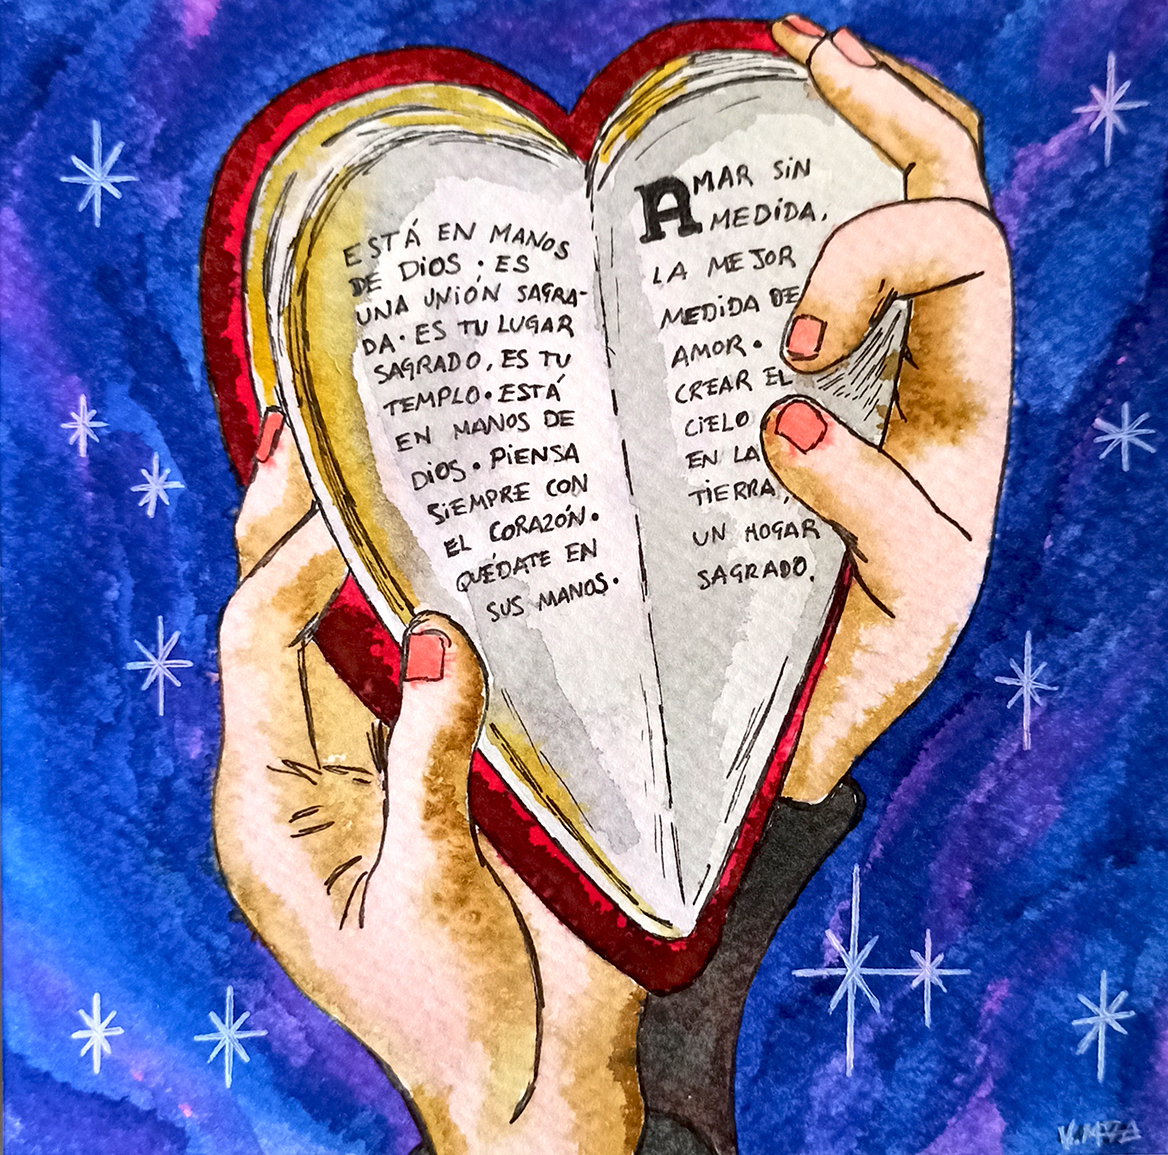 ESTÁ EN MANOS
DE DIOS · ES
UNA UNIÓN SAGRA-
DA · ES TU LUGAR
SAGRADO, ES TU
TEMPLO · ESTÁ
EN MANOS DE
DIOS · PIENSA
SIEMPRE CON
EL CORAZÓN.
QUÉDATE EN
SUS MANOS.
AMAR SIN
MEDIDA,
LA MEJOR
MEDIDA DE
AMOR.
CREAR EL
CIELO
EN LA
TIERRA,
UN HOGAR
SAGRADO.